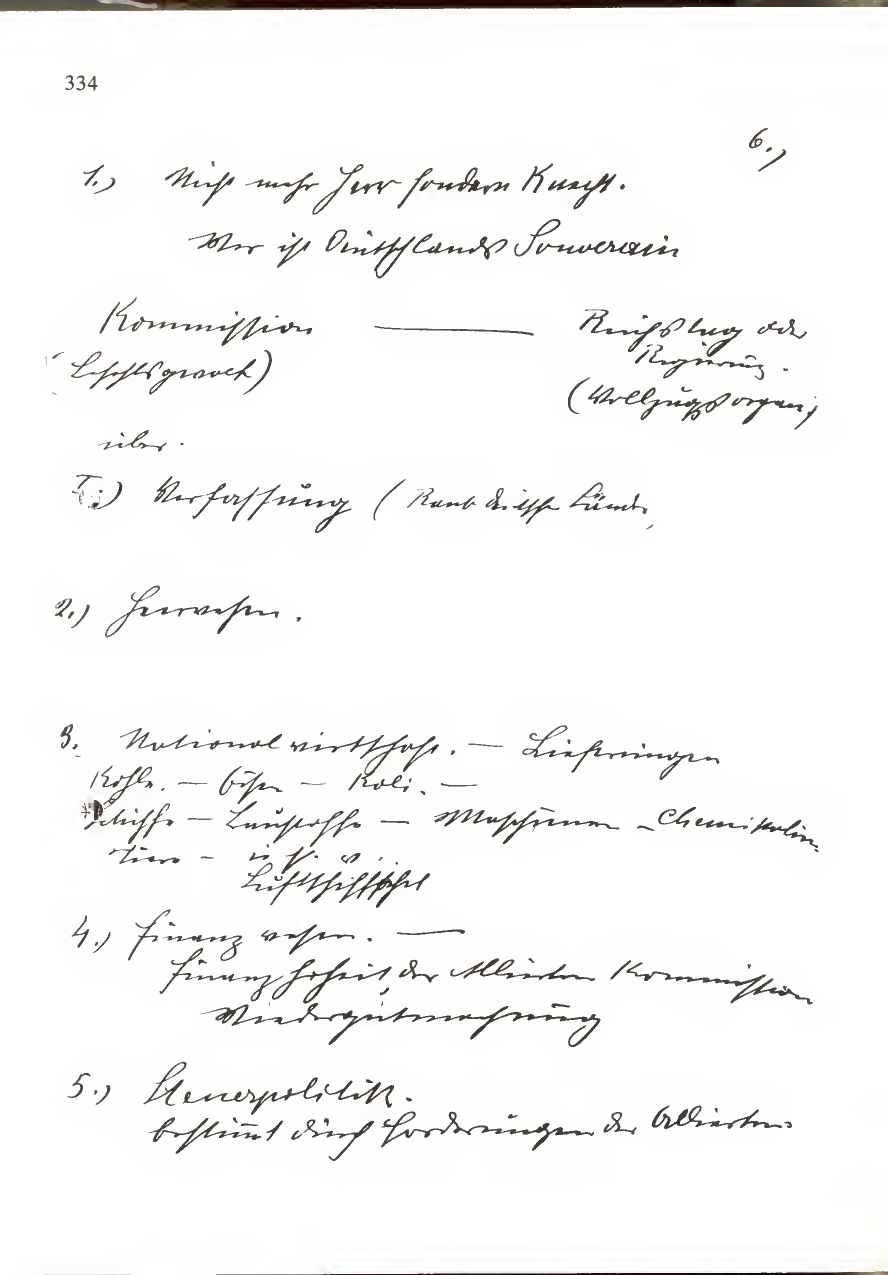 334
6.,
1.) Nicht mehr Herr sondern Knecht.
Wer ist Deutschlands Souverain
Kommission — Reichstag oder
Regierung.
(Befehlsgewalt)
(Vollzugsorgan)
über.
I.) Verfassung ( Raub deutscher Länder
2.) Heerwesen.
3. Nationalwirtschaft. — Lieferungen
Kohle. — Eisen — Kali. —
Schiffe — Baustoffe — Maschinen – Chemikalien
Tiere – u s. w.
Luftschiffe
4.) Finanzwesen. —
Finanzhoheit, der Alliierten Kommission
Wiedergutmachung
5.) Steuerpolitik.
bestimmt durch Forderungen der Alliierten